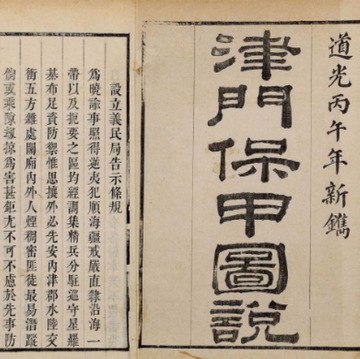 道光丙午年新鐫
津門保甲圖說
設立義民局告示條規
爲曉諭事照得逆夷犯順海疆戒嚴直隸沿海一
帶以及扼要之區均經調集精兵分駐巡守星羅
棊布足資防禦惟思攘外必先安内津郡水陸交
衝五方雜處關廂内外人煙稠密匪徒最易潛蹤
倘或乘隙掠爲害甚鉅尤不可不慮於先事防